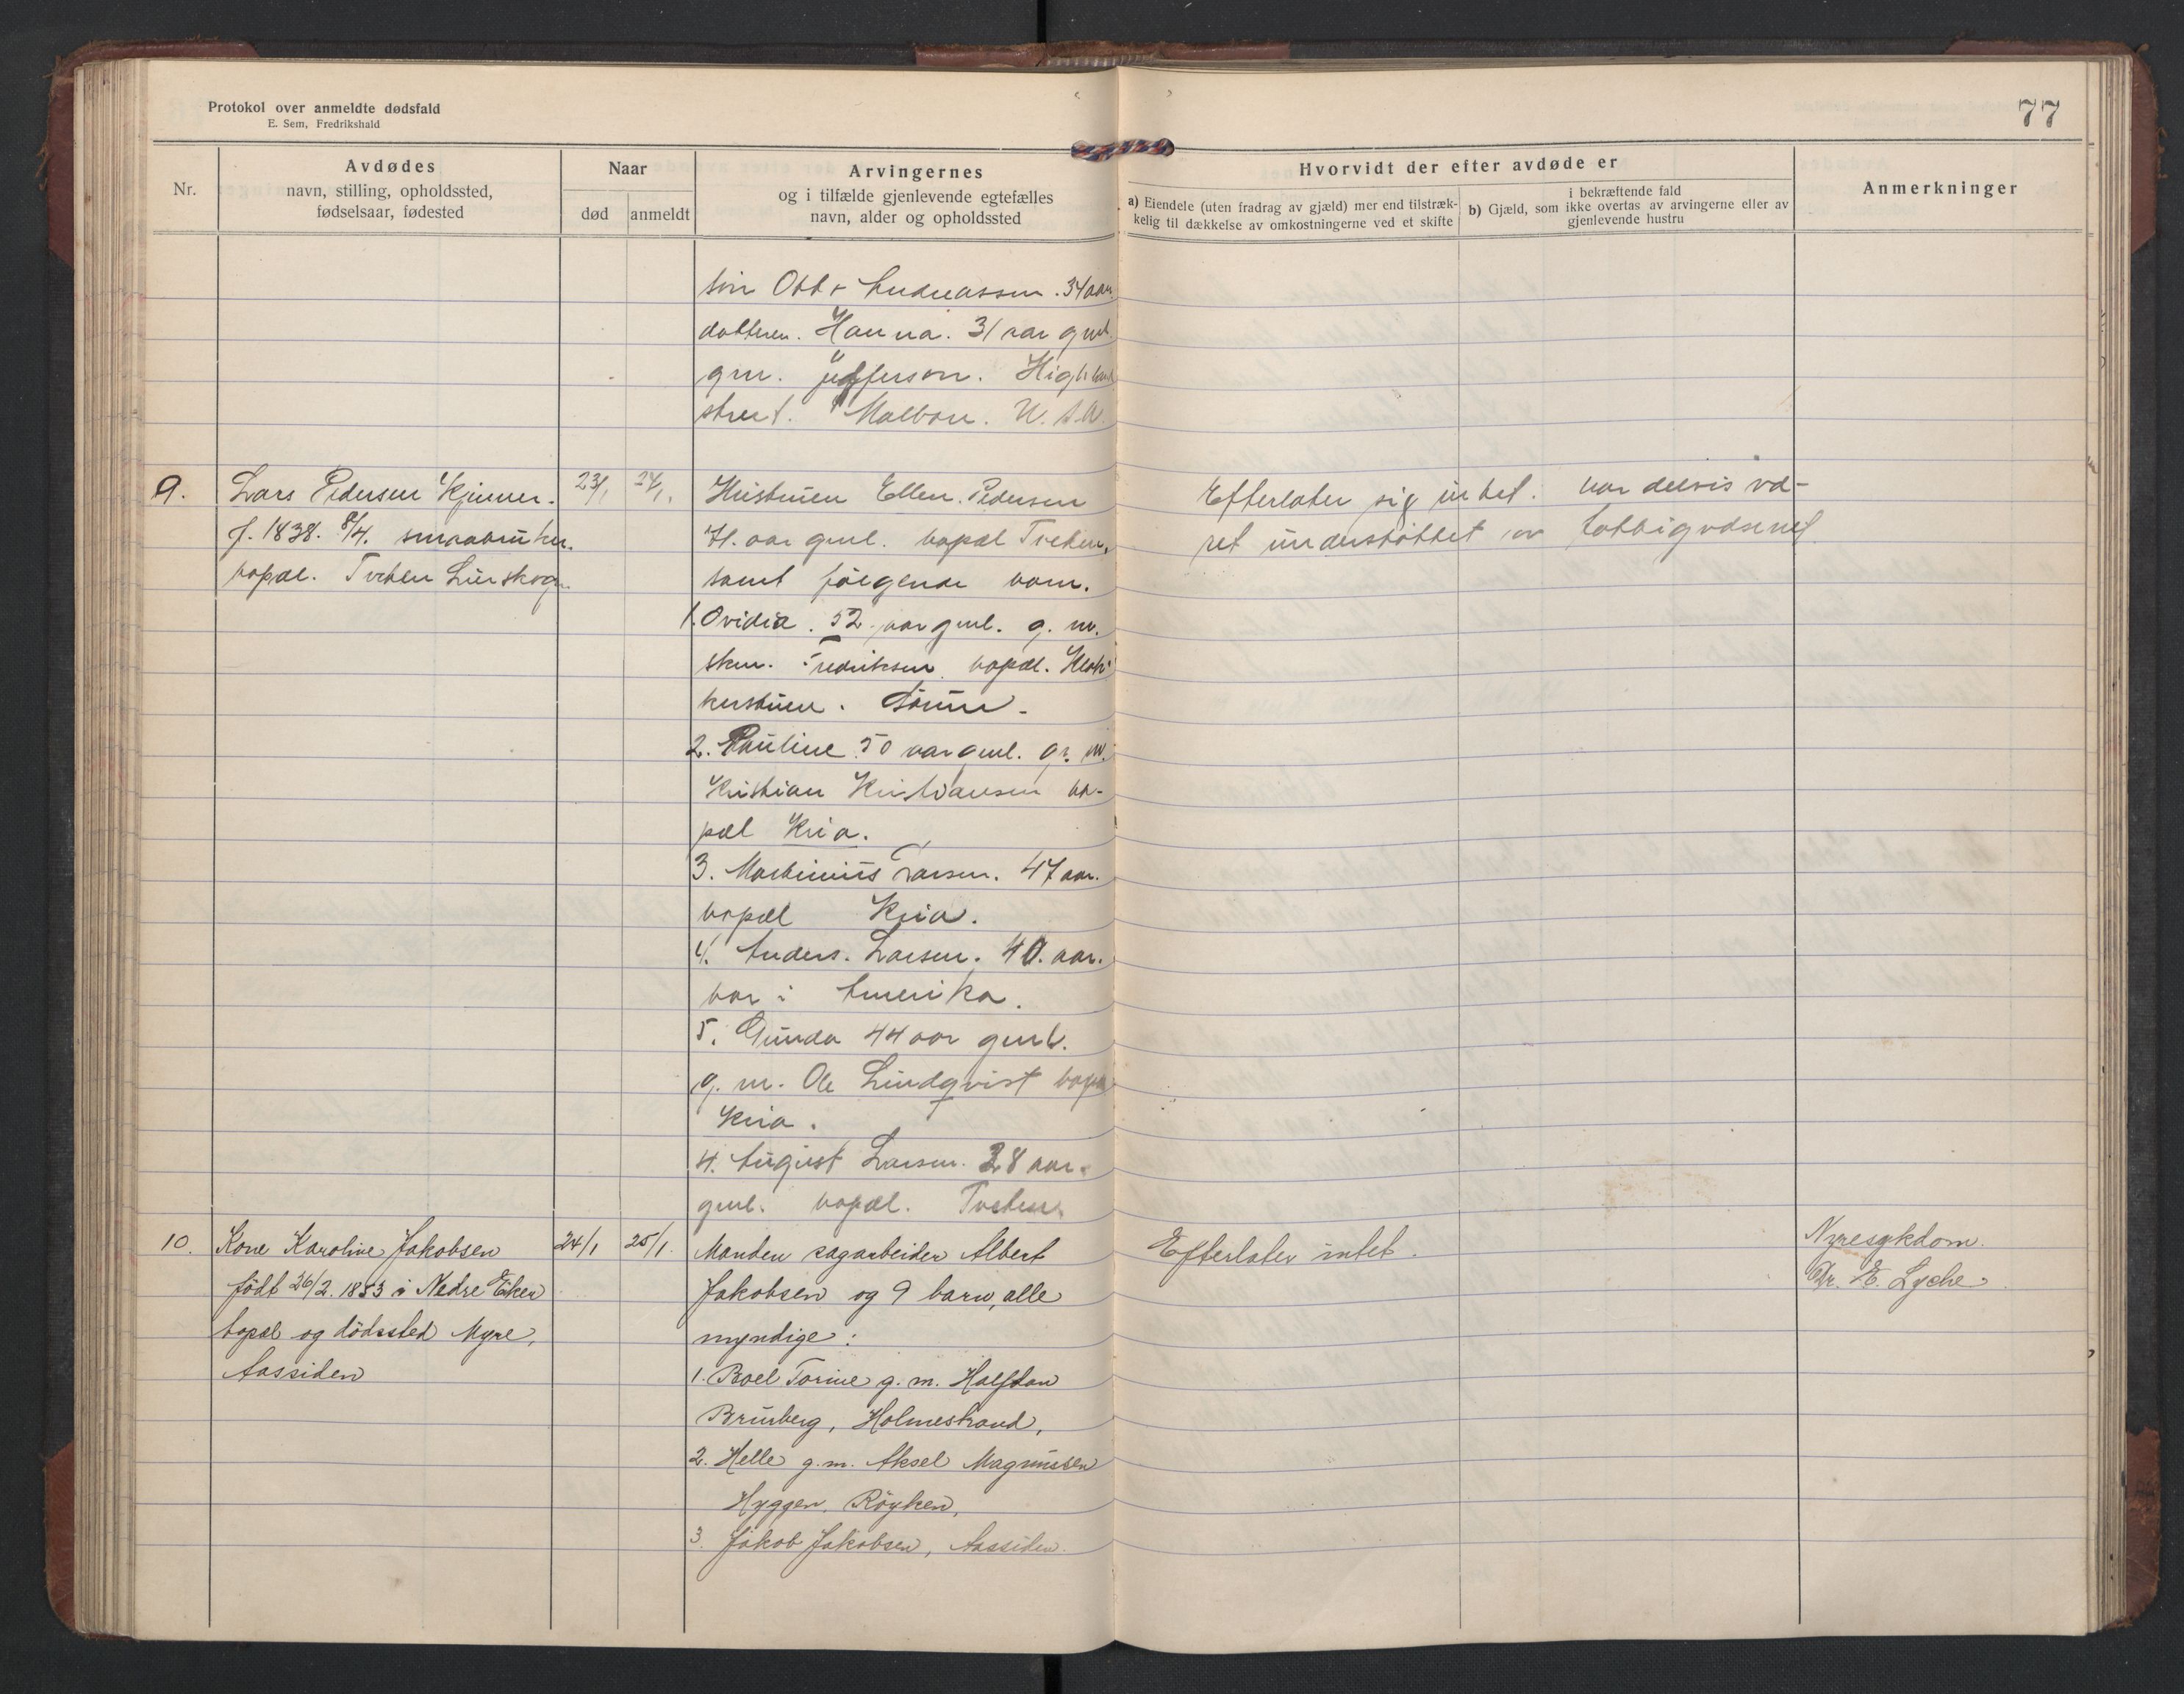 Protokol over anmeldte dødsfald
E. Sem, Fredrikshald
77
Nr.
Avdødes
navn, stilling, opholdssted,
fødselsaar, fødested
Naar
død
anmeldt
Arvingernes
og i tilfælde gjenlevende egtefælles
navn, alder og opholdssted
Hvorvidt der efter avdøde er
a) Eiendele (uten fradrag av gjæld) mer end tilstræk-
kelig til dækkelse av omkostningerne ved et skifte
i bekræftende fald
b) Gjæld, som ikke overtas av arvingerne eller av
gjenlevende hustru
Anmerkninger
søn Andreassen. 34 aar
datteren. Hanna. 31 aar gml.
gm. Jefferson. Highland
street. U.S.A.
9.
Lars Pedersen
f. 1838. 8/4. smaabruker.
bopæl. Tveten Lierskogen
23/1
24/1.
Hustruen Ellen Pedersen
71. aar gml. bopæl Tveten,
samt følgende barn.
1. Ovidia. 52 aar gml. g. m.
Fredriksen bopæl. Klok-
kerstuen.
2. Pauline 50 aar gml. g. m.
Kristian Kristiansen bo-
pæl Kria.
3. Martinius Larsen. 47 aar.
bopæl Kria.
4. Anders. Larsen. 40. aar.
bor i Amerika.
5. Gunda 44 aar gml.
g. m. Ole Lindqvist bopæl
Kria.
4. August Larsen. 28 aar.
gml. bopæl. Tveten.
Efterlater sig intet. har delvis væ-
ret understøttet av fattigvæsenet
10.
Kone Karoline Jakobsen
født 26/2. 1853 i Nedre Eiker
bopæl og dødssted Myre,
Aassiden
24/1
25/1.
Manden sagarbeider Albert
Jakobsen og 9 barn, alle
myndige:
1. Boel Torine g. m. Halfdan
Brunberg, Holmestrand,
2. Helle g. m. Aksel Magnussen
Hyggen, Röyken,
3. Jakob Jakobsen, Aassiden.
Efterlater intet.
Nyresykdom.
Dr. E. Lyche.